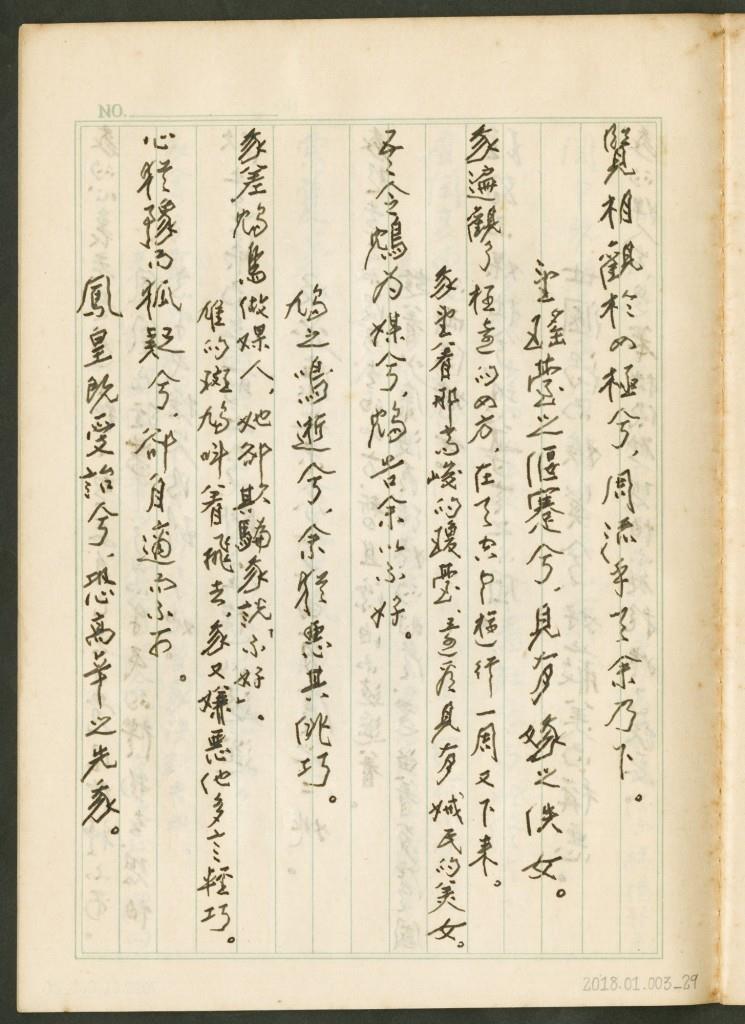 覽相觀於四極兮，周流乎天余乃下。
望瑤臺之偃蹇兮，見有娀之佚女。
我遍觀了極遠的四方，在天空中橫行一周又下來。
我望着那高峻的瓊臺，遠遠見有娀氏的美女。
吾令鴆為媒兮，鴆告余以不好。
鳩之鳴逝兮，余猶惡其佻巧。
我差鴆鳥做媒人，她卻欺騙我說「不好」。
雄的斑鳩叫着飛去，我又嫌惡他多言輕巧。
心猶豫而狐疑兮，欲自適而不可。
鳳皇既受詒兮，恐高辛之先我。
NO.
2018.01.003_29